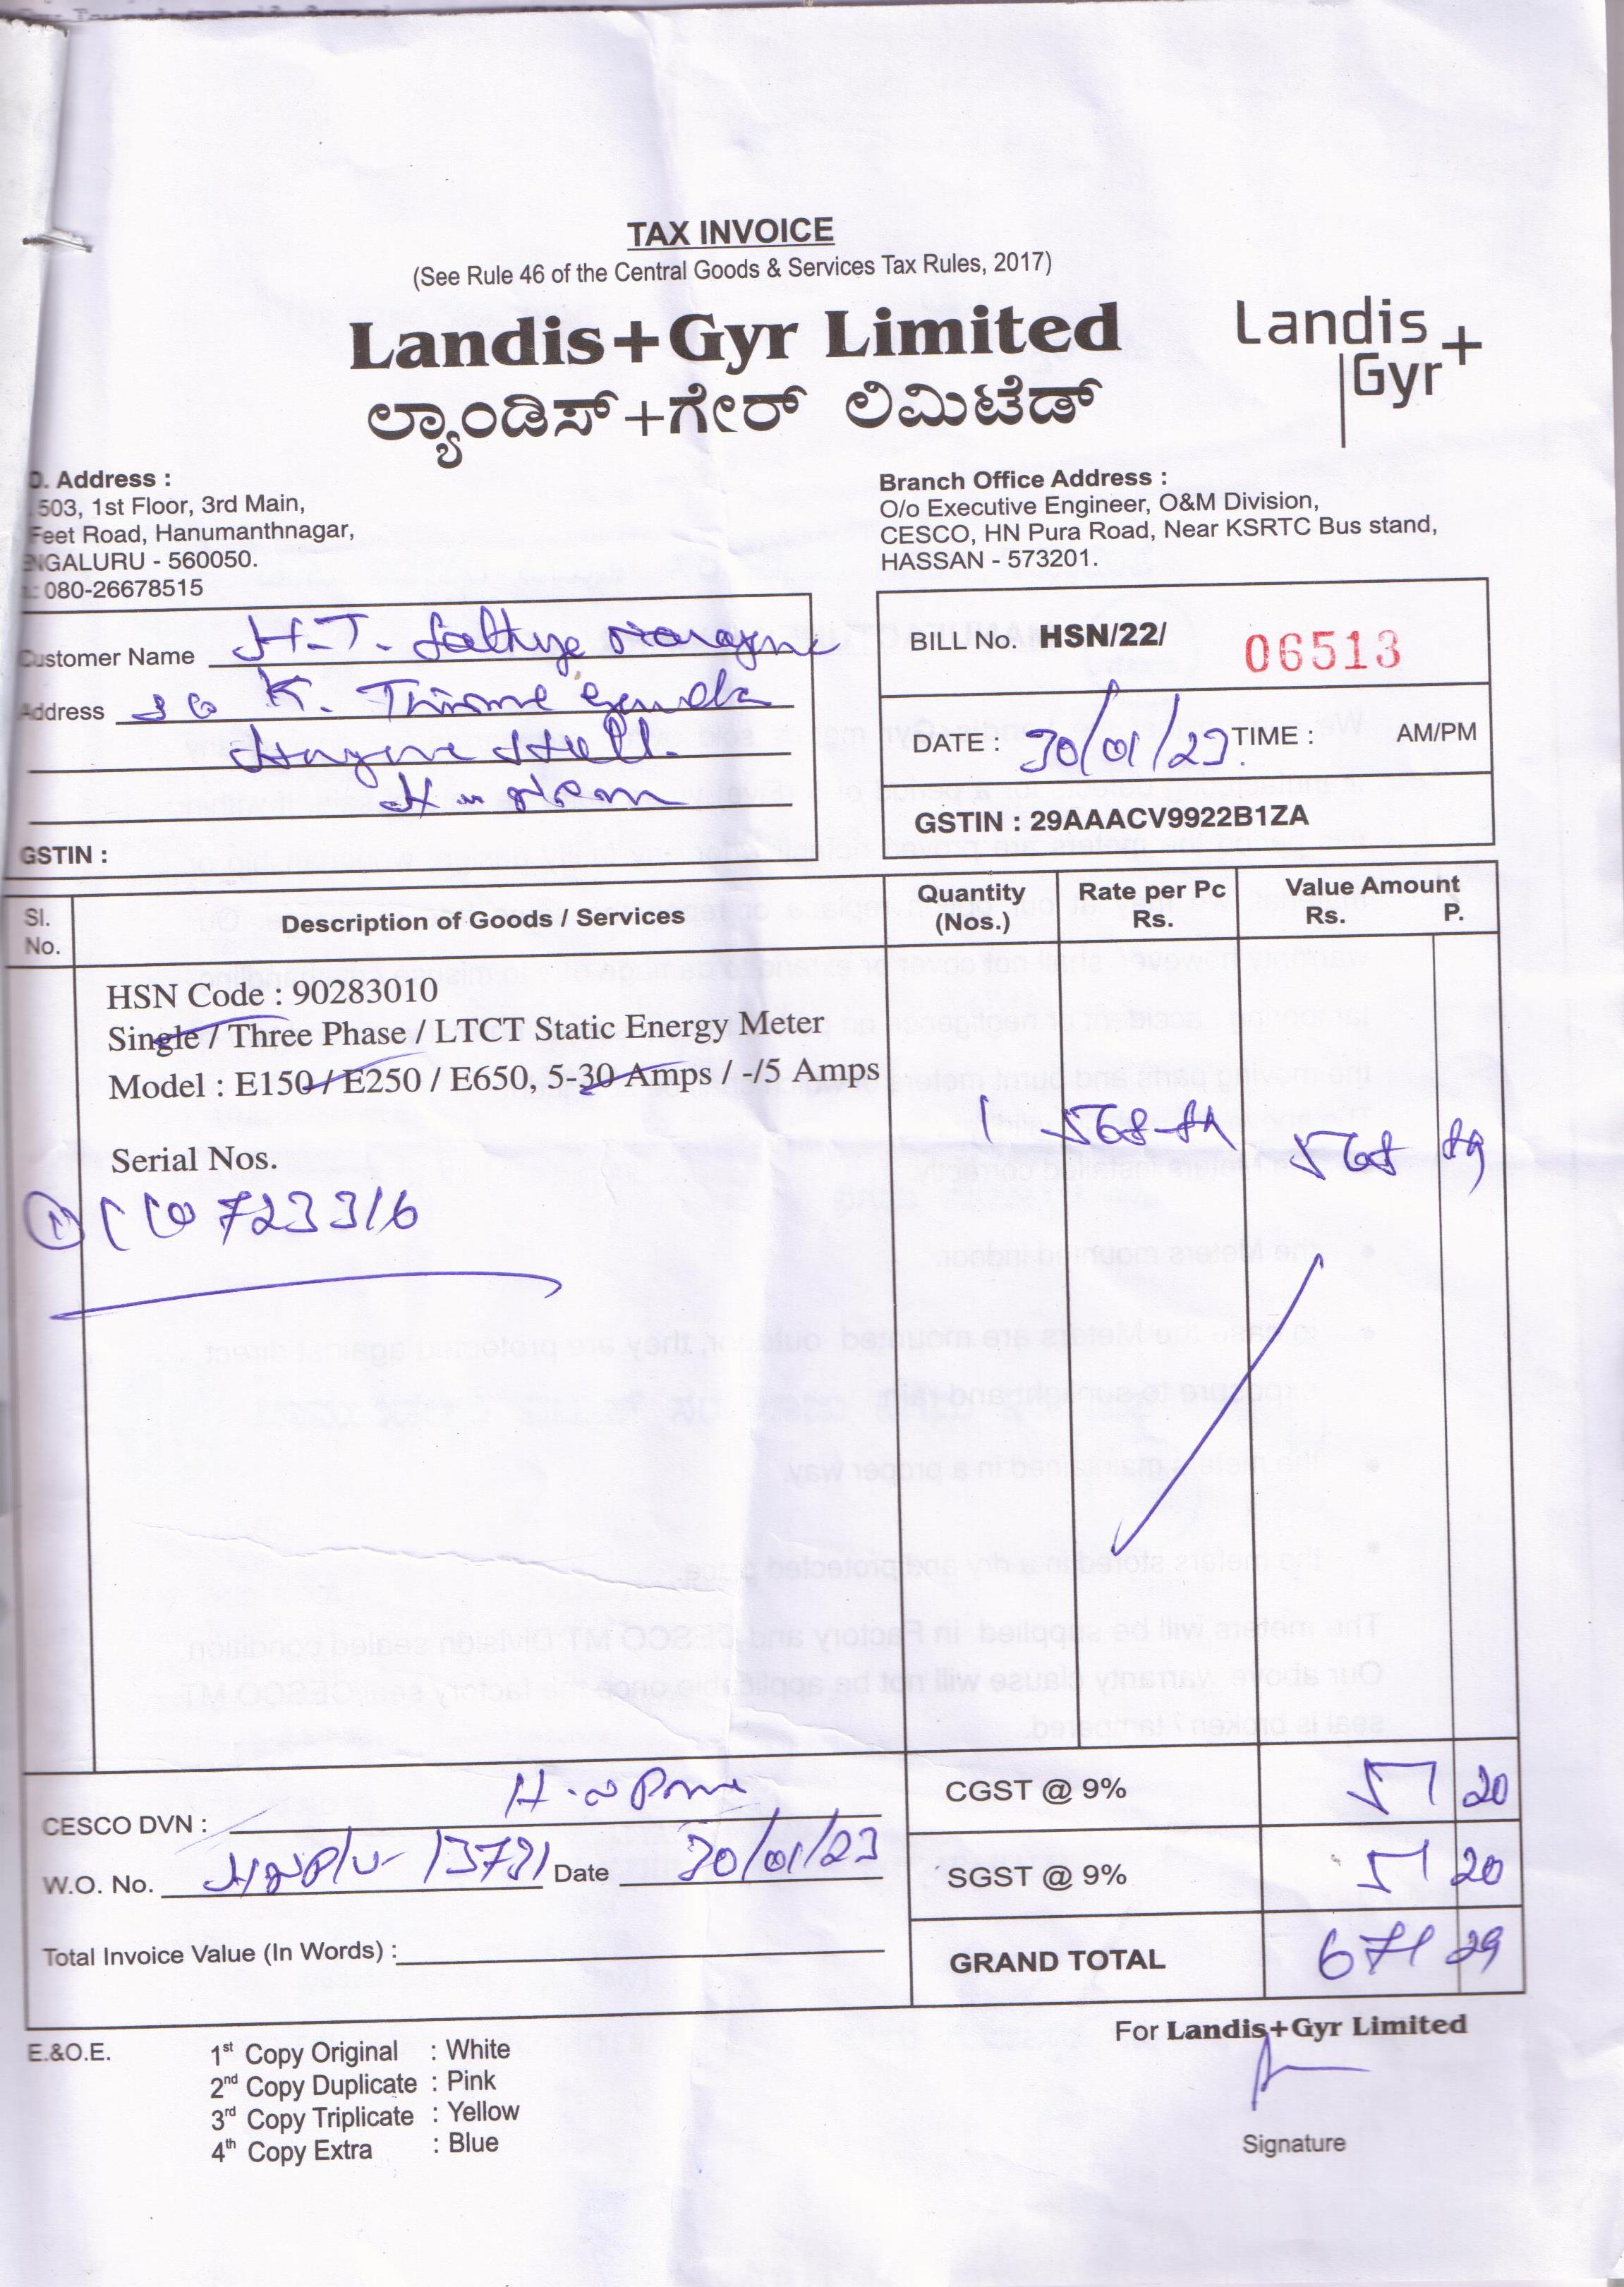 TAX INVOICE
(See Rule 46 of the Central Goods & Services Tax Rules, 2017)
Landis+Gyr Limited
ಲ್ಯಾಂಡಿಸ್+ಗೇರ್ ಲಿಮಿಟೆಡ್
Landis
Gyr+
D. Address :
503, 1st Floor, 3rd Main,
Feet Road, Hanumanthnagar,
NGALURU - 560050.
: 080-26678515
Branch Office Address :
O/o Executive Engineer, O&M Division,
CESCO, HN Pura Road, Near KSRTC Bus stand,
HASSAN - 573201.
Customer Name H.T.
Address K.
GSTIN :
BILL No. HSN/22/ 06513
DATE : 30/01/23. TIME : AM/PM
GSTIN : 29AAACV9922B1ZA
Sl. No. Description of Goods / Services Quantity (Nos.) Rate per Pc Rs. Value Amount Rs. P.
HSN Code : 90283010
Single / Three Phase / LTCT Static Energy Meter
Model : E150 / E250 / E650, 5-30 Amps / -/5 Amps
1 568-89 568 89
Serial Nos.
1) 110723316
CESCO DVN :
W.O. No. Date 30/01/23
Total Invoice Value (In Words) :
CGST @ 9% 51 20
SGST @ 9% 51 20
GRAND TOTAL 671 29
E.&O.E.
1st Copy Original : White
2nd Copy Duplicate : Pink
3rd Copy Triplicate : Yellow
4th Copy Extra : Blue
For Landis+Gyr Limited
Signature